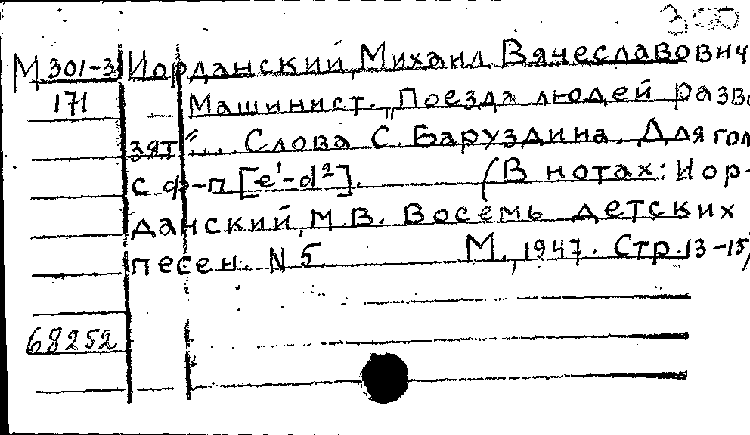 300
М 301-3 Иорданский, Михаил Вячеславович
171 Машинист. „Поезда людей разво
зят“... Слова С. Баруздина. Для гол
с ф-п [e¹-d²]. (В нотах: Иор-
данский, М.В. Восемь детских
песен. N 5 М., 1947. Стр. 13-15)
68252